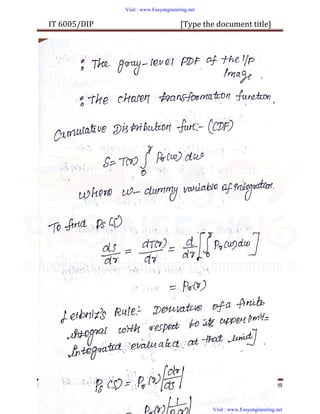 Visit : www.Easyengineering.net
IT 6005/DIP [Type the document title]
: The gray-level PDF of the I/p
Image.
: The chosen transformation function.
Cumulative Distribution func:- (CDF)
S = T(r) ∫₀ʳ Pr(w) dw
where w- dummy variable of integration.
To find Ps(S)
ds/dr = dT(r)/dr = d/dr [∫₀ʳ Pr(w)dw]
= Pr(r)
Leibniz's Rule:- Derivative of a finite
integral with respect to its upper limit =
Integrated evaluated at that limit]
Ps(S) = Pr(r) |dr/ds|
Visit : www.Easyengineering.net